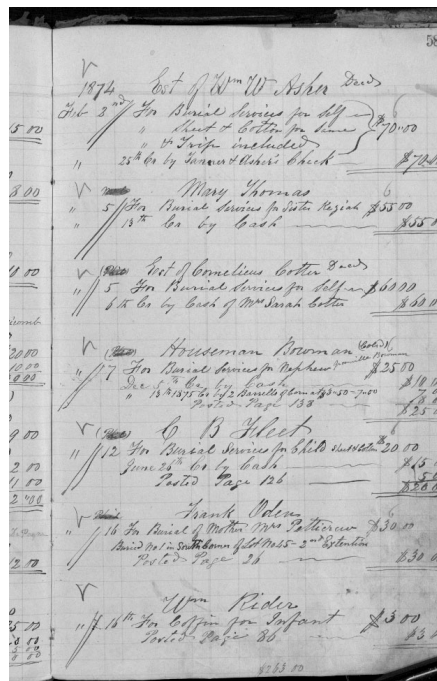 58
1874 Est of Wm W Asher Decd
Feb 3rd For Burial Services for Self
" Sheet & Cotton for same $70.00
" & Trip included
" 25th Cr by Tanner & Asher's Check $70.0
Mary Thomas
" 5 For Burial Services for Sister Keziah $55.00
" 13th Cr by Cash $55.0
Est of Cornelieus Cotter Decd
" 5 For Burial Services for Self $60.00
6th Cr by Cash of Mrs Sarah Cotter $60.0
Houseman Bowman (Cold)
" 7 For Burial Services for Nephew Bowman $25.00
Dec 5th Cr by Cash $10.
" 18th 1875 Cr by 2 Barrells of Corn at 3.50 - 7.00
Posted Page 138 $25.0
C B Fleet
" 12 For Burial Services for Child Sheet & Cotton $20.00
June 26th Cr by Cash $15
Posted Page 126 $20.0
Frank Oden
" 16 For Burial of Mother Mrs Petticrew $30.00
Buried No 1 in South Corner of Lot No 45 - 2nd Extention
Posted Page 26 $30.0
Wm Rider
" 16th For Coffin for Infant $3.00
Posted Page 86 $3.0
$263.00
15.00
3.00
20.00
10.00
9.00
2.00
1.00
12.00